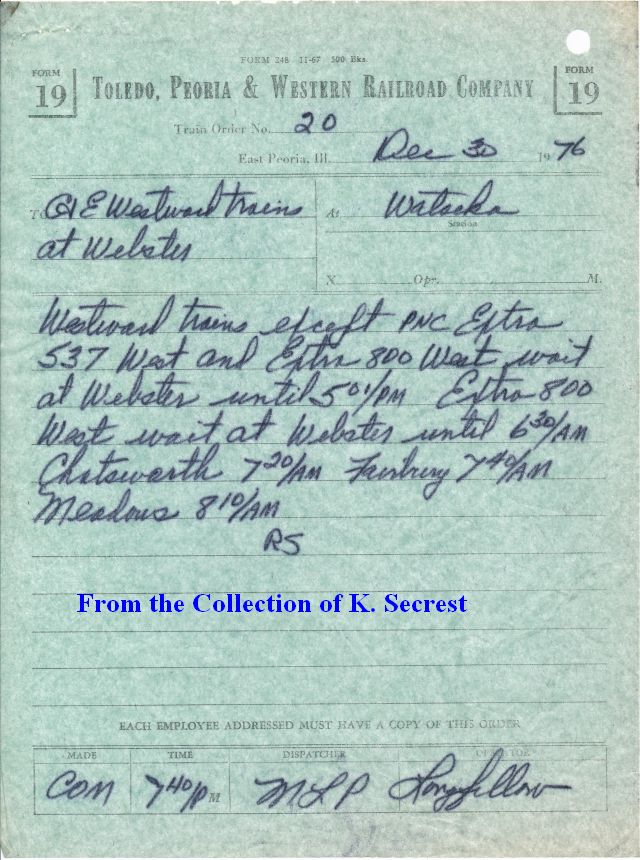 FORM 248 11-67 500 Bks.
FORM 19
TOLEDO, PEORIA & WESTERN RAILROAD COMPANY
FORM 19
Train Order No. 20
East Peoria, Ill. Dec 30 1976
To C&E Westward trains
at Webster
At Watseka
Station
X Opr. M.
Westward trains except PNC Extra
537 West and Extra 800 West wait
at Webster until 501/PM Extra 800
West wait at Webster until 630/AM
Chatsworth 720/AM Fairbury 740/AM
Meadows 810/AM
RS
From the Collection of K. Secrest
EACH EMPLOYEE ADDRESSED MUST HAVE A COPY OF THIS ORDER
MADE TIME DISPATCHER OPERATOR
COM 740/PM MLP Longfellow